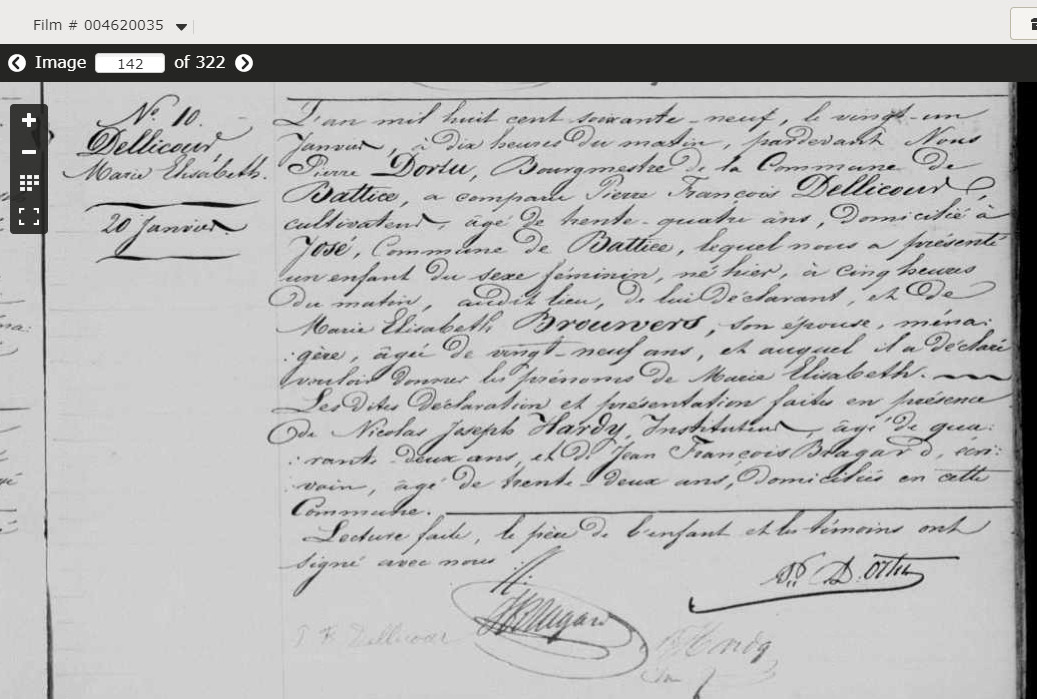 Film # 004620035
Image 142 of 322
N.º 10.
Dellicour,
Marie Elisabeth.
20 Janvier.
L'an mil huit cent soixante-neuf, le vingt-un
Janvier, à dix heures du matin, pardevant Nous
Pierre Dortu, Bourgmestre de la Commune de
Battice, a comparu Pierre François Dellicour,
cultivateur, âgé de trente-quatre ans, domicilié à
José, Commune de Battice, lequel nous a présenté
un enfant du sexe féminin, né hier, à cinq heures
du matin, audit lieu, de lui déclarant, et de
Marie Elisabeth Brouwers, son épouse, ména:
:gère, âgée de vingt-neuf ans, et auquel il a déclaré
vouloir donner les prénoms de Marie Elisabeth.
Les dites déclaration et présentation faites en présence
de Nicolas Joseph Hardy, Instituteur, âgé de qua:
:rante-deux ans, et de Jean François Bragard, écri:
:vain, âgé de trente-deux ans, domiciliés en cette
Commune.
Lecture faite, le père de l'enfant et les témoins ont
signé avec nous
P. Dortu
P F Dellicour
Bragard
Hardy